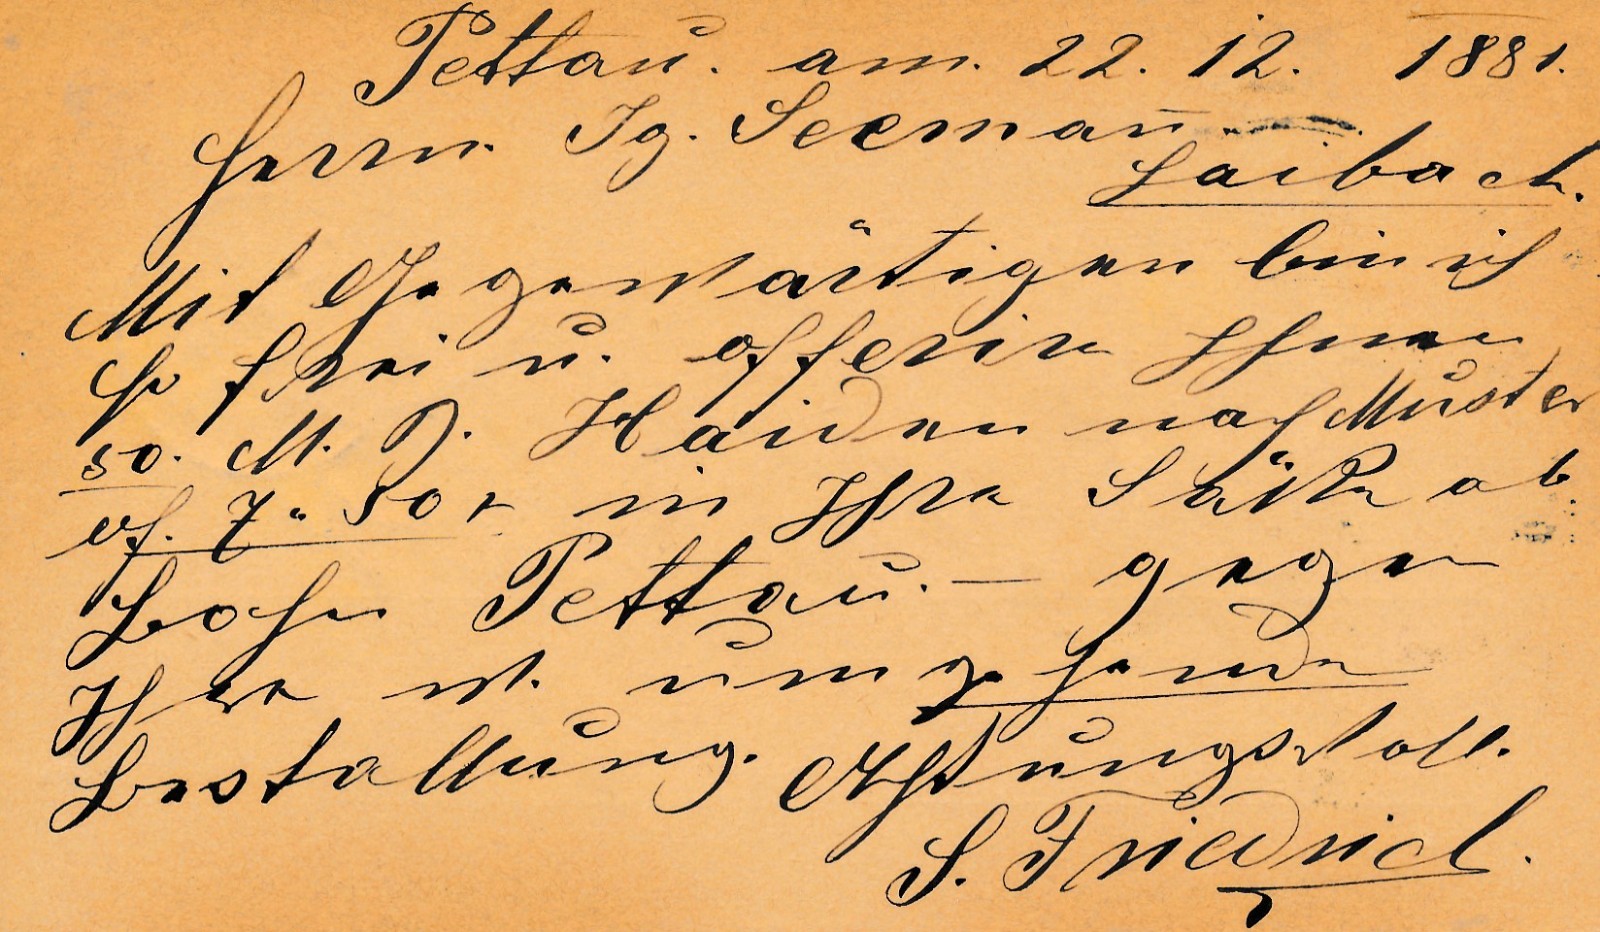 Pettau. am. 22. 12. 1881.
Herrn. Ig. Seeman̄.
Laibach.
Mit Gegenwärtigen bin ich
so frei u. offerire Ihnen
50. M. Z. Haiden nach Muster
á f. 7" 50 x in Ihre Säcke ab
Bahn Pettau. — gegen
Ihre w. umgehende
Bestellung. Achtungsvoll.
S. Friedrich.